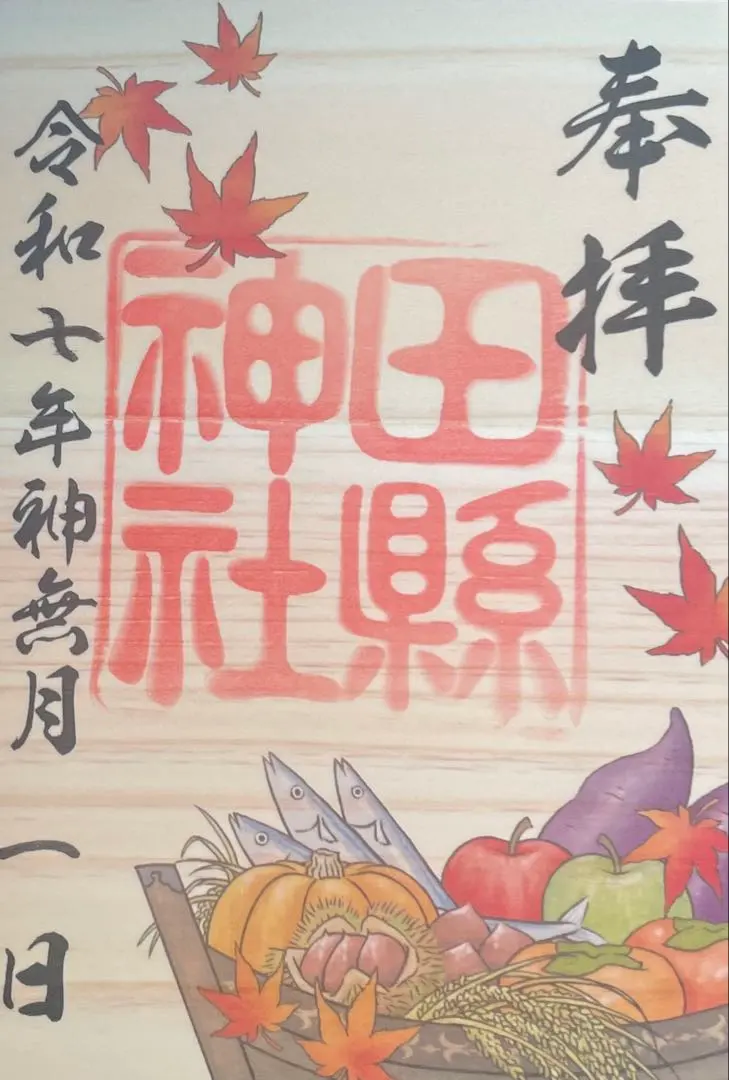 奉拝
田縣
神社
令和七年神無月一日